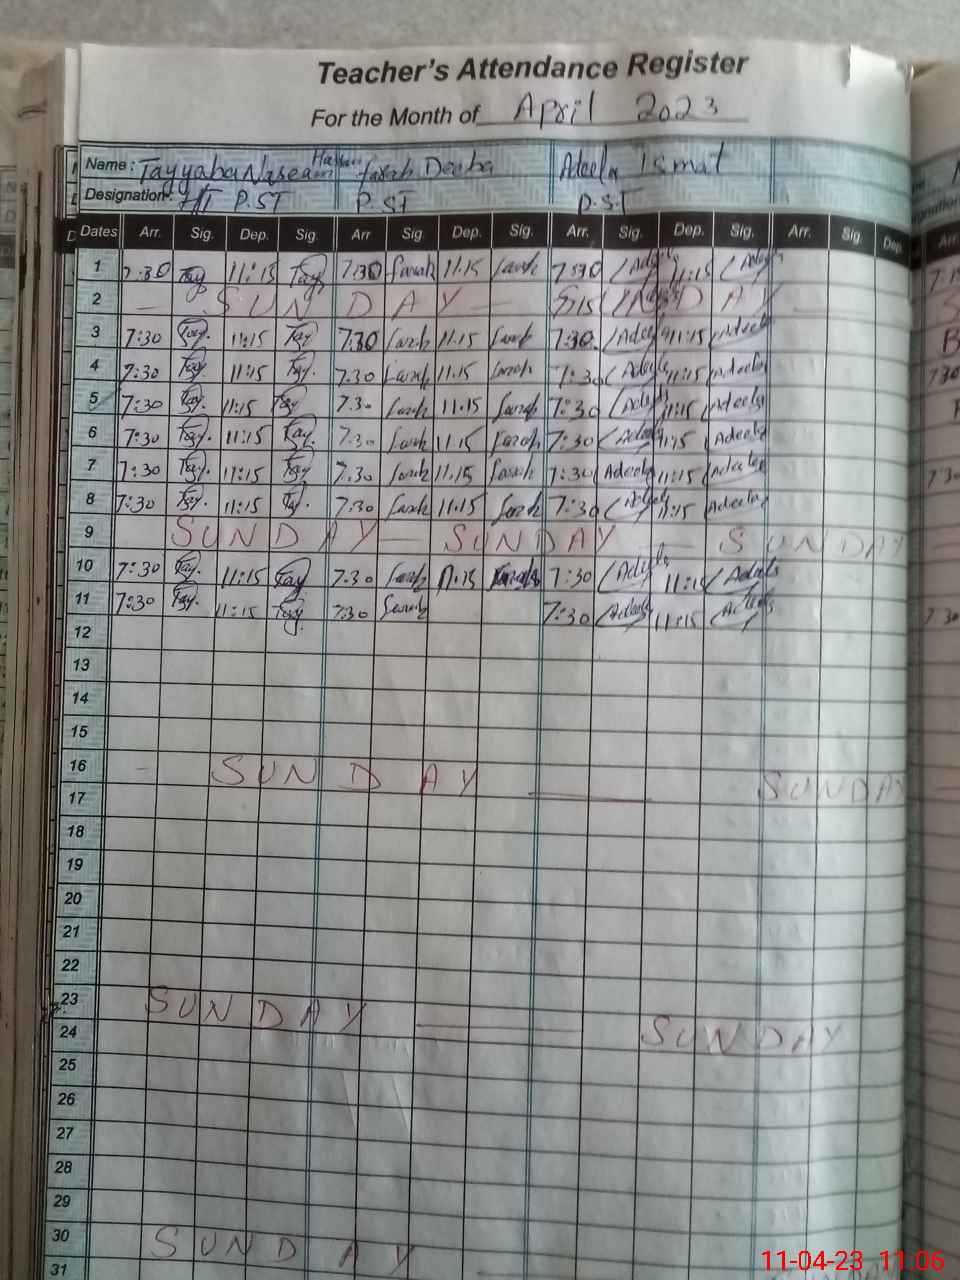 Teacher's Attendance Register
For the Month of April 2023
Name: Tayyaba Naseem Hassan Farah Deeba Adeela Ismat
Designation: HT P.ST P.ST P.S.T
Dates Arr. Sig. Dep. Sig. Arr Sig. Dep. Sig. Arr. Sig. Dep. Sig. Arr. Sig. Dep.
1 7:30 Tay 11:15 Tay 7:30 Farah 11.15 Farah 7:30 Adeela 11:15 Adeela
2 — SUNDAY — SUNDAY —
3 7:30 Tay. 11:15 Tay 7:30 Farah 11.15 Farah 7:30. Adeela 11:15 Adeela
4 7:30 Tay 11:15 Tay. 7.30 Farah 11.15 Farah 7:30 Adeela 11:15 Adeela
5 7:30 Tay. 11:15 Tay 7.30 Farah 11.15 Farah 7:30 Adeela 11:15 Adeela
6 7:30 Tay. 11:15 Tay. 7.30 Farah 11.15 Farah 7:30 Adeela 11:15 Adeela
7 7:30 Tay. 11:15 Tay 7.30 Farah 11.15 Farah 7:30 Adeela 11:15 Adeela
8 7:30 Tay. 11:15 Tay. 7.30 Farah 11.15 Farah 7:30 Adeela 11:15 Adeela
9 SUNDAY — SUNDAY — SUNDAY
10 7:30 Tay. 11:15 Tay 7.30 Farah 11.15 Farah 7:30 Adeela 11:15 Adeela
11 7:30 Tay. 11:15 Tay 7.30 Farah 7:30 Adeela 11:15 Adeela
12
13
14
15
16 - SUNDAY — SUNDAY
17
18
19
20
21
22
23 SUNDAY — SUNDAY
24
25
26
27
28
29
30 SUNDAY
31
11-04-23 11:06